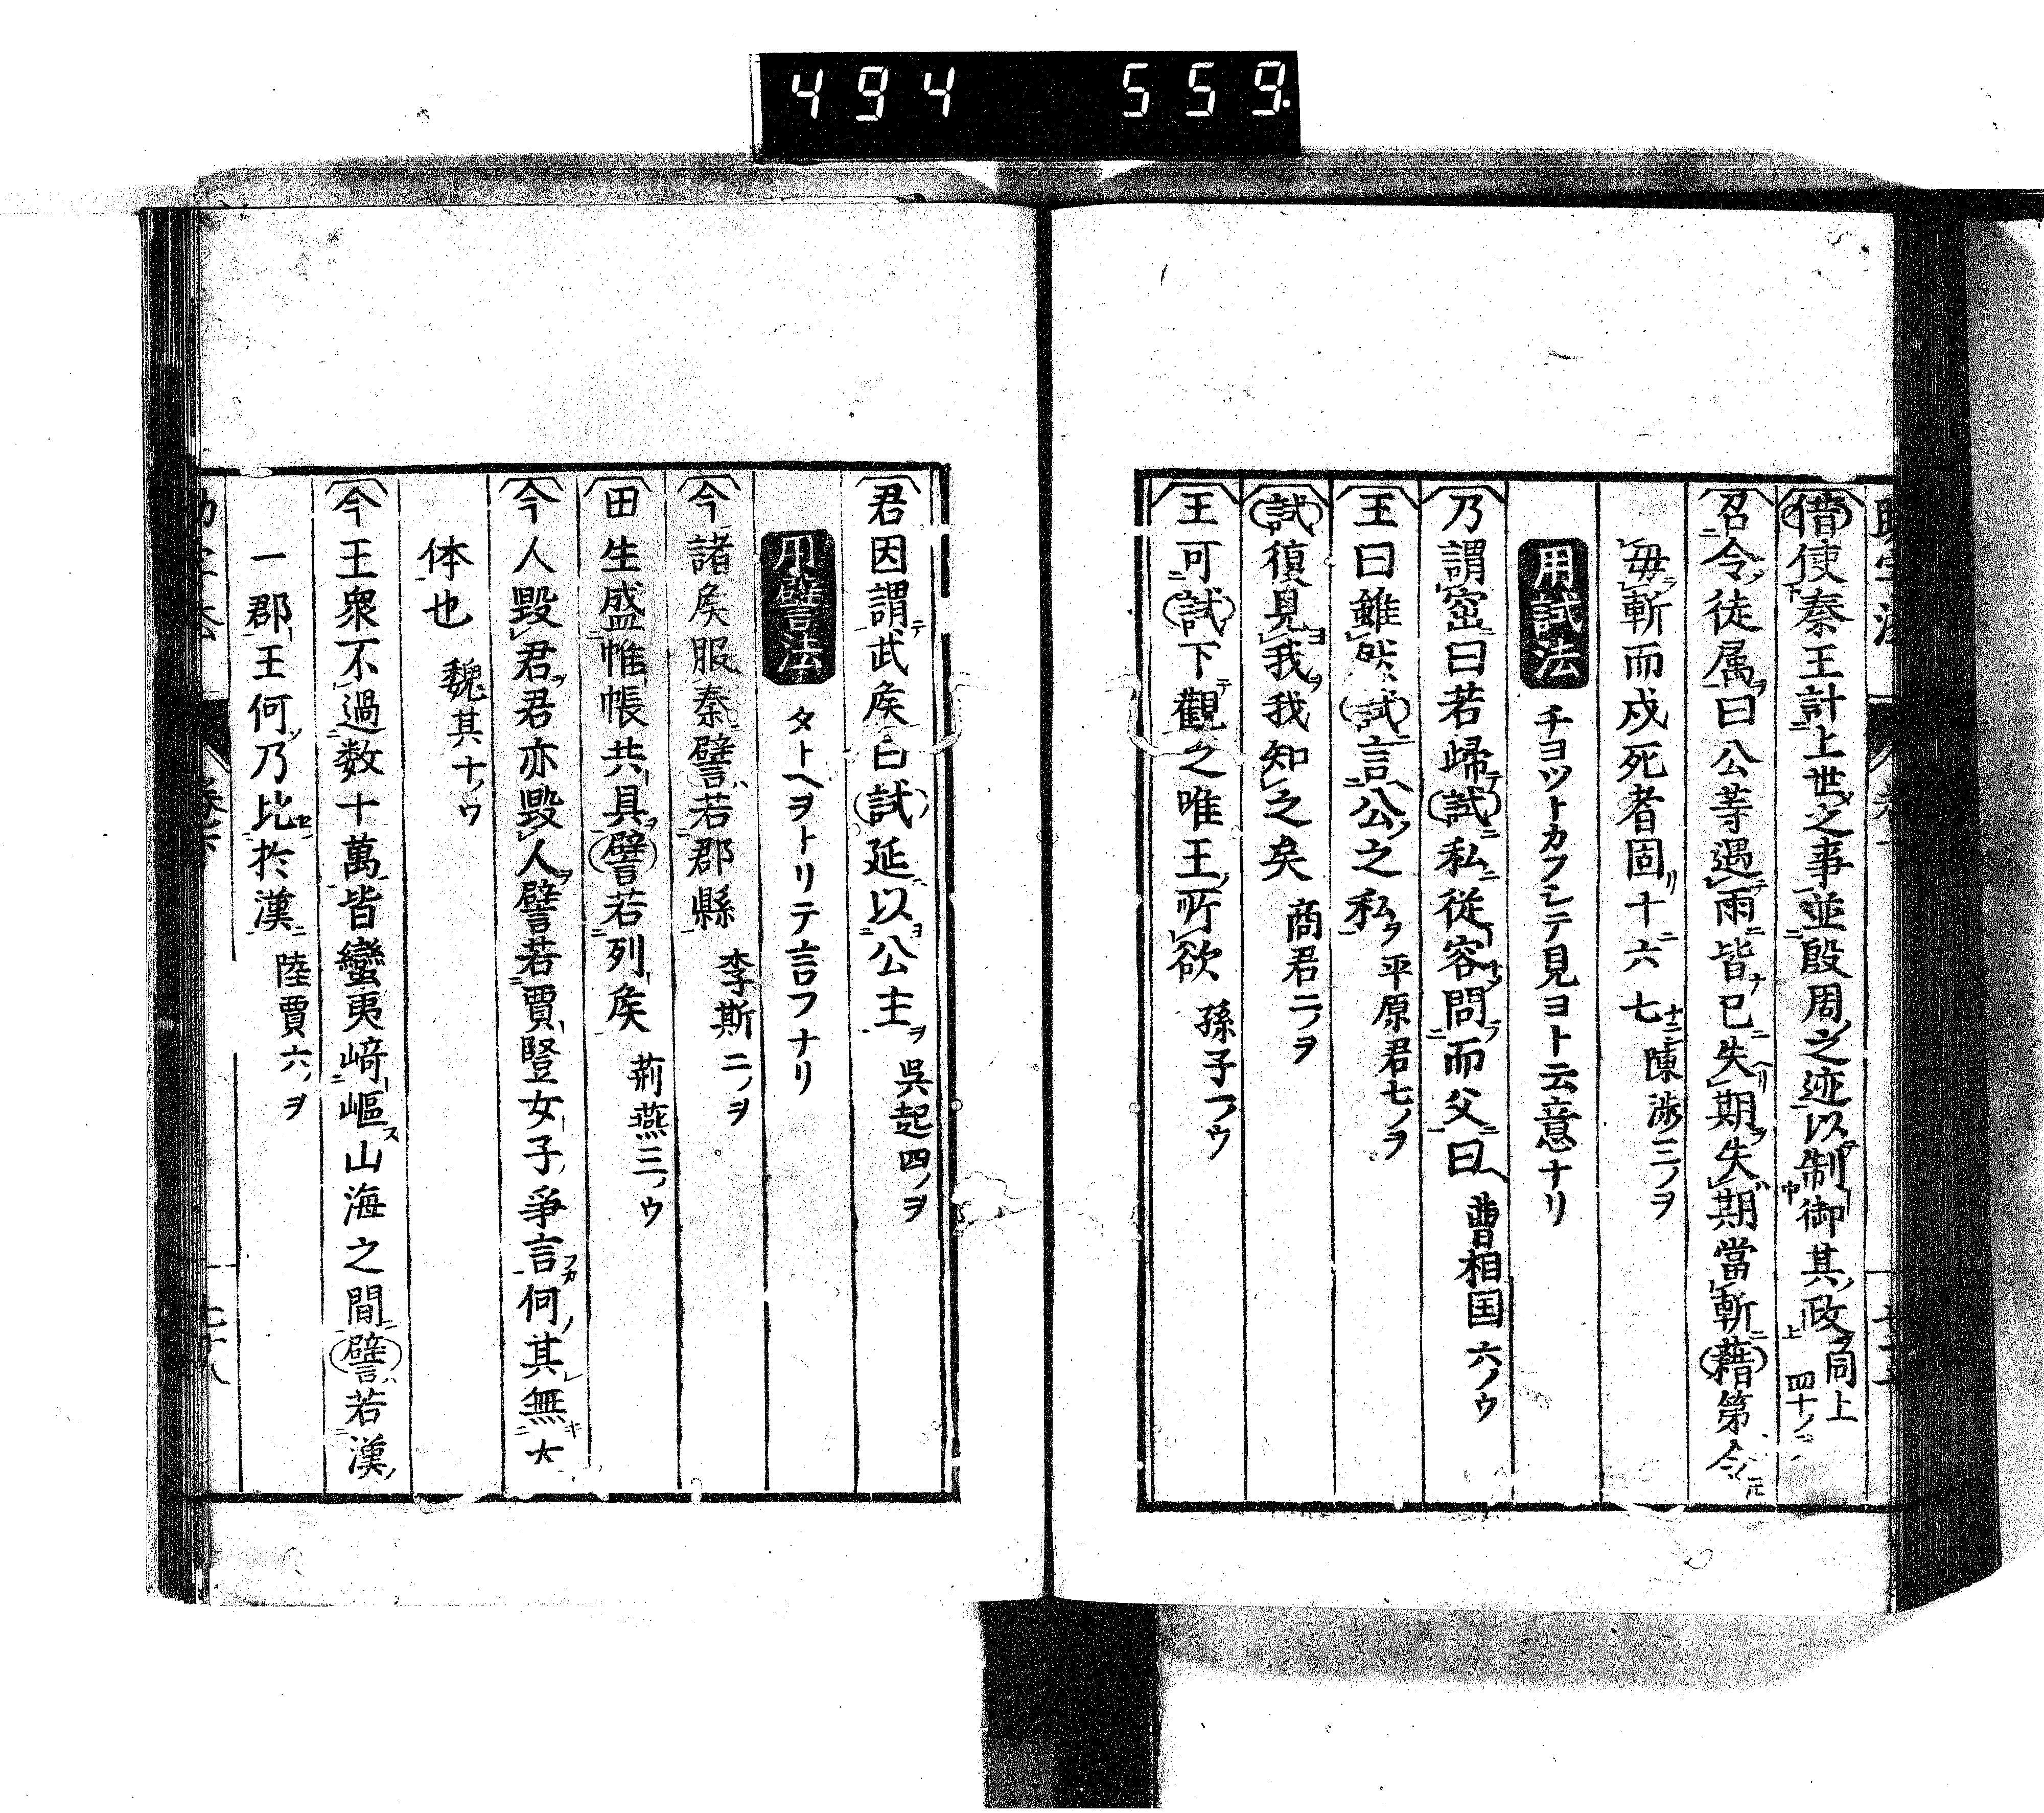 494 559.
借使秦王計上世之事並殷周之迹以制御其政 同上四十ノ
召令徒属曰公等遇雨皆已失期失期當斬藉第令
毋斬而戍死者固十六七 陳渉三ノヲ
用試法 チヨツトカフシテ見ヨト云意ナリ
乃謂窋曰若歸試私從容問而父曰 曹相国六ノウ
王曰雖然試言公之私 平原君七ノヲ
試復見我我知之矣 商君二ノヲ
王可試下觀之唯王所欲 孫子一ノウ
君因謂武矦曰試延以公主 吳起四ノヲ
用譬法 タトヘヲトリテ言フナリ
今諸矦服秦譬若郡縣 李斯二ノヲ
田生盛帷帳共具譬若列矦 荊燕三ノウ
今人毀君君亦毀人譬若賈豎女子爭言何其無大
体也 魏其十ノウ
今王衆不過数十萬皆蠻夷﨑嶇山海之間譬若漢
一郡王何乃比於漢 陸賈六ノヲ